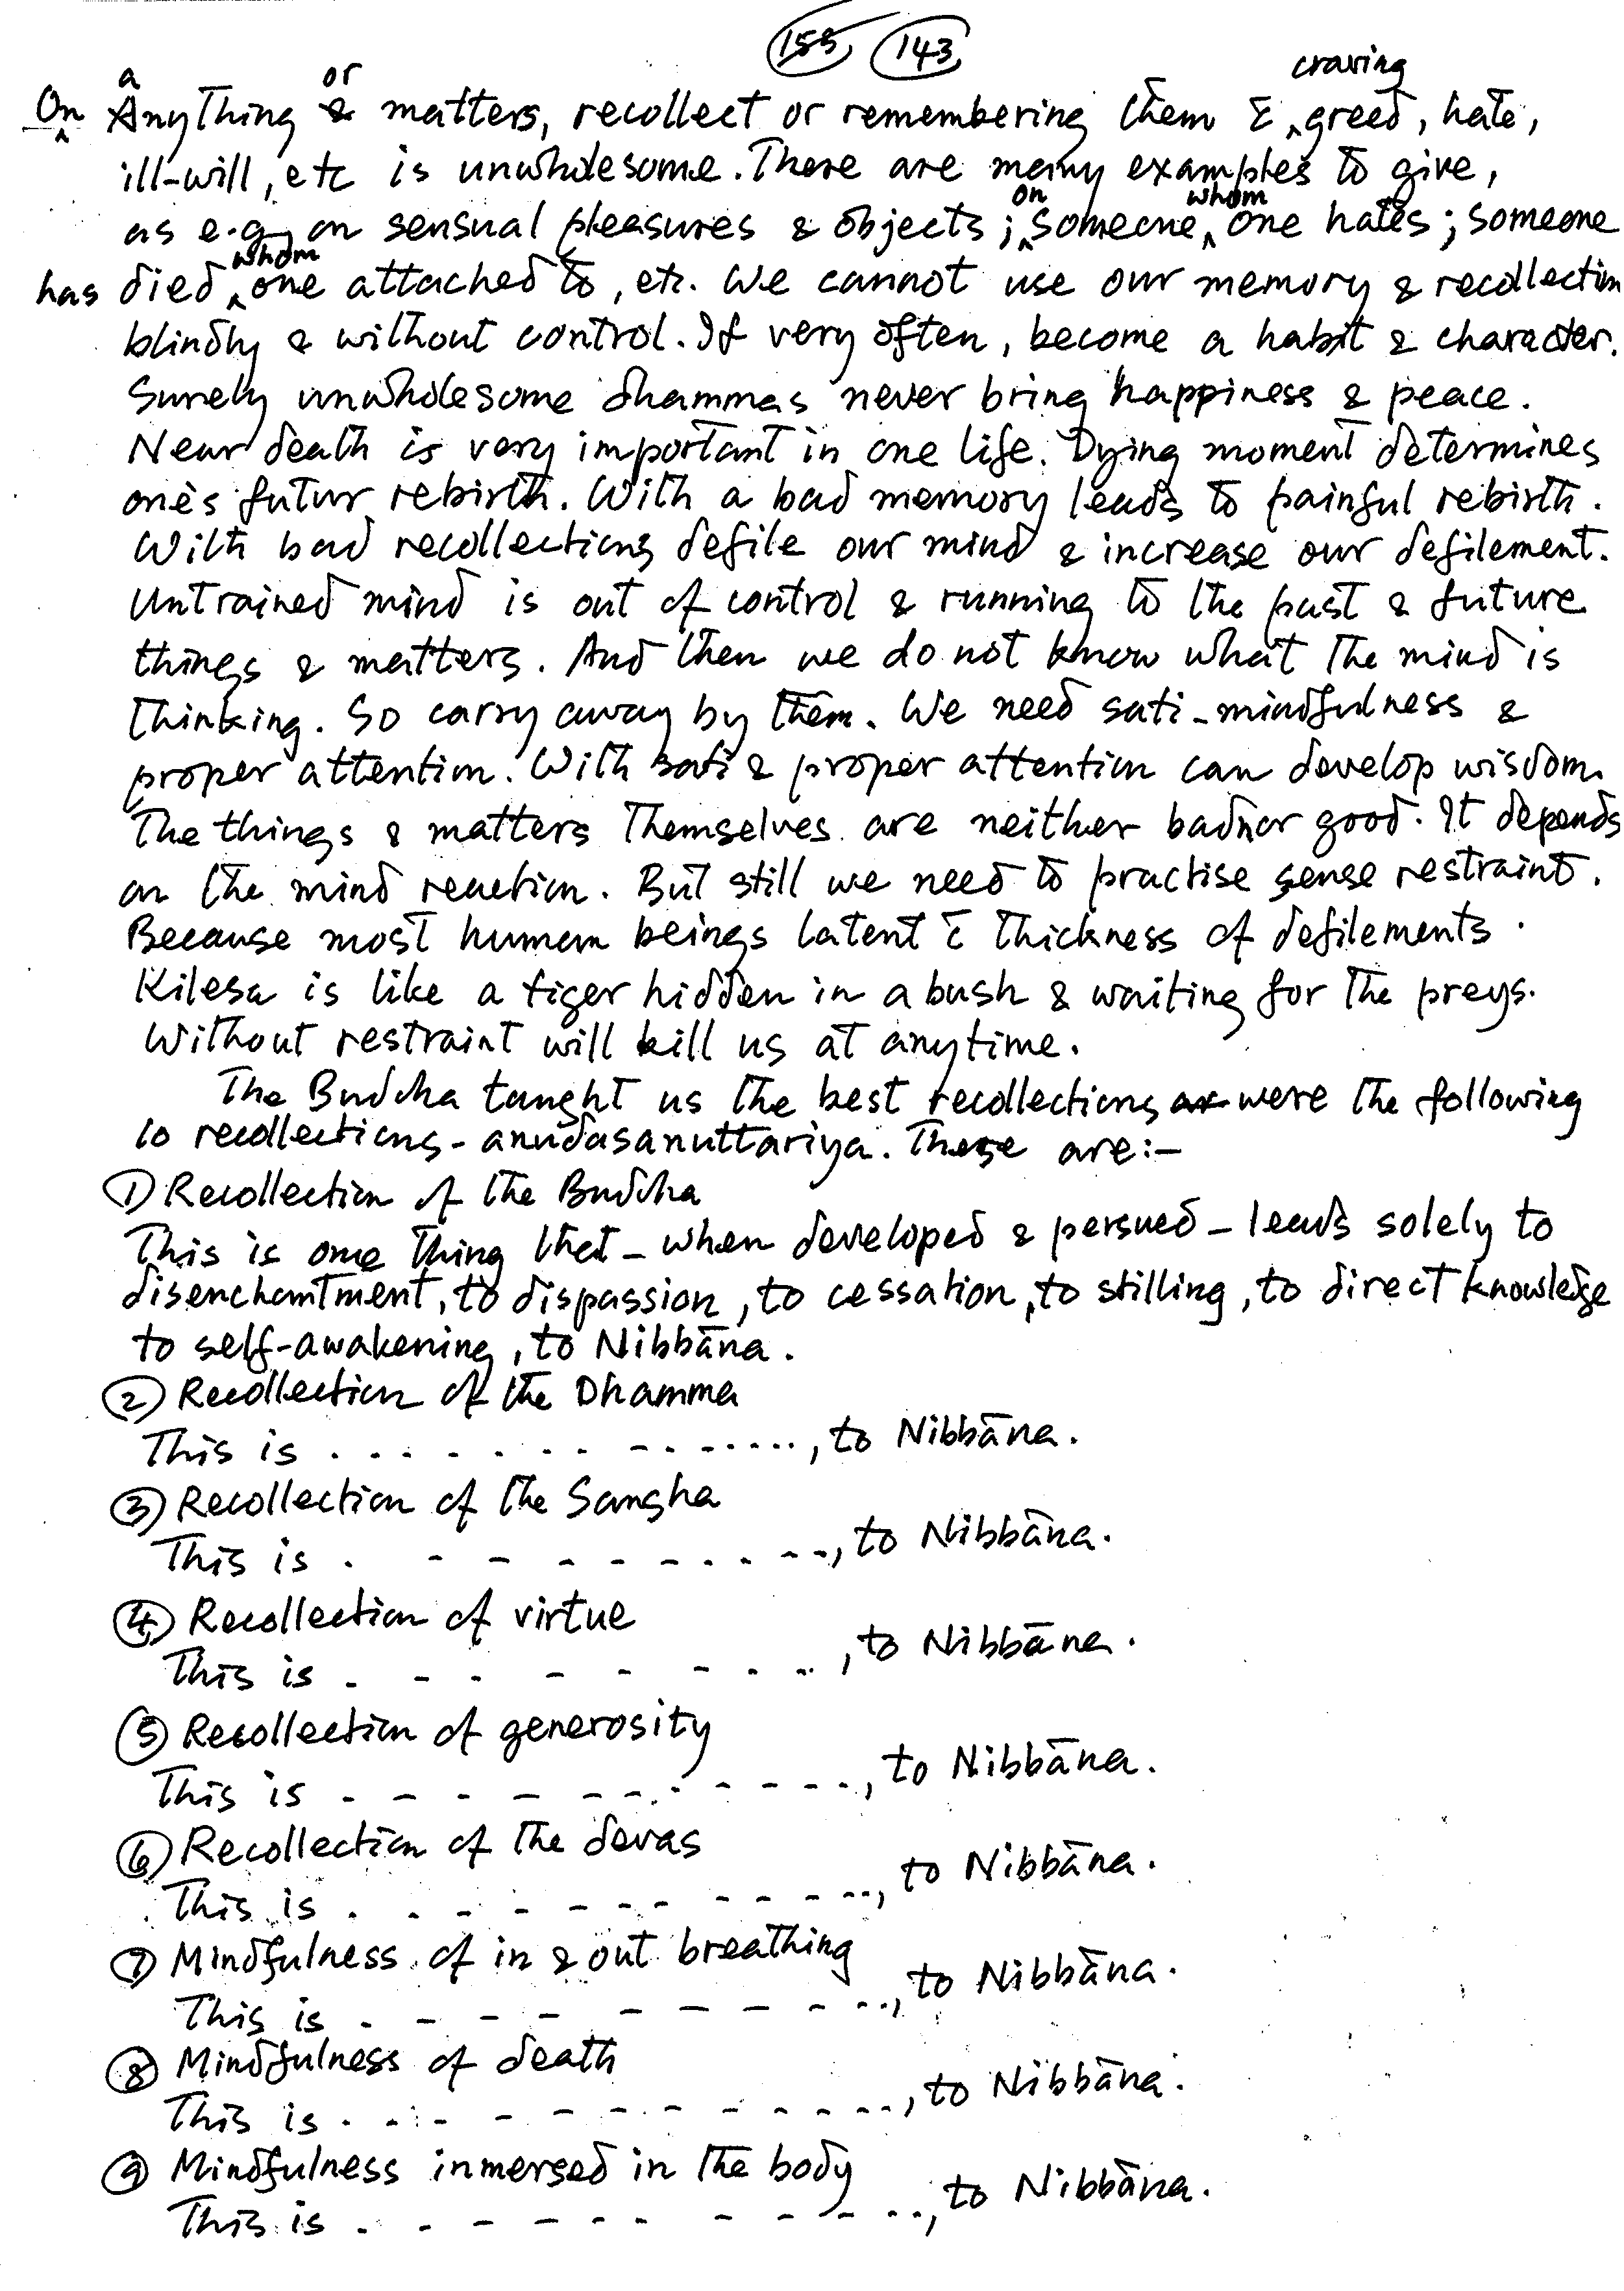 155 143
On anything or matters, recollect or remembering them c̄ craving greed, hate,
ill-will, etc is unwholesome. There are many examples to give,
as e.g, on sensual pleasures & objects; on someone whom one hates; someone
has died whom one attached to, etc. We cannot use our memory & recollection
blindly & without control. If very often, become a habit & character.
Surely unwholesome dhammas never bring happiness & peace.
Near death is very important in one life. Dying moment determines
one's futur rebirth. With a bad memory leads to painful rebirth.
With bad recollections defile our mind & increase our defilement.
Untrained mind is out of control & running to the past & future
things & matters. And then we do not know what the mind is
thinking. So carry away by them. We need sati-mindfulness &
proper attention. With sati & proper attention can develop wisdom.
The things & matters themselves are neither bad nor good. It depends
on the mind reaction. But still we need to practise sense restraint.
Because most human beings latent c̄ thickness of defilements.
Kilesa is like a tiger hidden in a bush & waiting for the preys.
Without restraint will kill us at anytime.
The Buddha taught us the best recollections were the following
10 recollections - anudasanuttariya. These are:-
① Recollection of the Buddha
This is one thing that - when developed & persued - leads solely to
disenchantment, to dispassion, to cessation, to stilling, to direct knowledge
to self-awakening, to Nibbāna.
② Recollection of the Dhamma
This is . . . . . . . . . . . . . . ., to Nibbāna.
③ Recollection of the Sangha
This is . - - - - - - - - -, to Nibbāna.
④ Recollection of virtue
This is - - - - - - - - -, to Nibbāna.
⑤ Recollection of generosity
This is - - - - - - - - - - -, to Nibbāna.
⑥ Recollection of the devas
This is . . - - - - - - - - -, to Nibbāna.
⑦ Mindfulness of in & out breathing
This is . - - - - - - - - -, to Nibbāna.
⑧ Mindfulness of death
This is . . - - - - - - - - -, to Nibbāna.
⑨ Mindfulness inmersed in the body
This is . - - - - - - - - -, to Nibbāna.